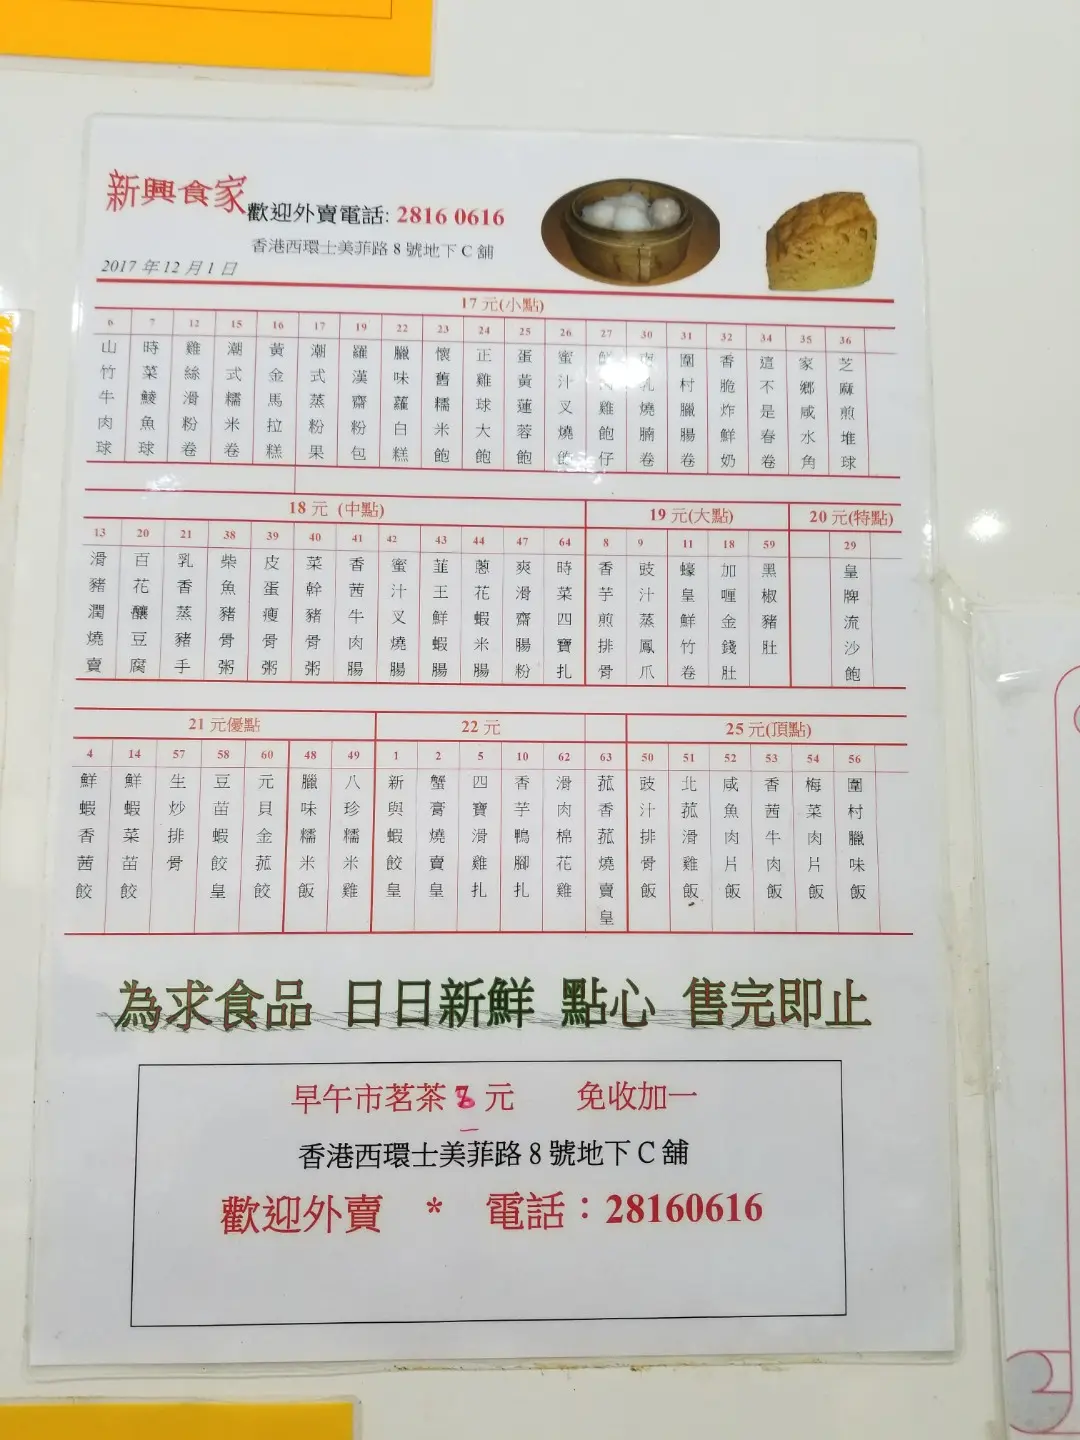 新興食家
歡迎外賣電話: 2816 0616
香港西環士美菲路 8 號地下 C 舖
2017 年 12 月 1 日
17 元(小點)
6 山竹牛肉球
7 時菜鯪魚球
12 雞絲滑粉卷
15 潮式糯米卷
16 黃金馬拉糕
17 潮式蒸粉果
19 羅漢齋粉包
22 臘味蘿白糕
23 懷舊糯米飽
24 正雞球大飽
25 蛋黃蓮蓉飽
26 蜜汁叉燒飽
27 鮮 雞飽仔
30 南乳燒腩卷
31 圍村臘腸卷
32 香脆炸鮮奶
34 這不是春卷
35 家鄉咸水角
36 芝麻煎堆球
18 元 (中點)
13 滑豬潤燒賣
20 百花釀豆腐
21 乳香蒸豬手
38 柴魚豬骨粥
39 皮蛋瘦骨粥
40 菜幹豬骨粥
41 香茜牛肉腸
42 蜜汁叉燒腸
43 韮王鮮蝦腸
44 蔥花蝦米腸
47 爽滑齋腸粉
64 時菜四寶扎
19 元(大點)
8 香芋煎排骨
9 豉汁蒸鳳爪
11 蠔皇鮮竹卷
18 加喱金錢肚
59 黑椒豬肚
20 元(特點)
29 皇牌流沙飽
21 元優點
4 鮮蝦香茜餃
14 鮮蝦菜苗餃
57 生炒排骨
58 豆苗蝦餃皇
60 元貝金菰餃
48 臘味糯米飯
49 八珍糯米雞
22 元
1 新興蝦餃皇
2 蟹膏燒賣皇
5 四寶滑雞扎
10 香芋鴨腳扎
62 滑肉棉花雞
63 菰香菰燒賣皇
25 元(頂點)
50 豉汁排骨飯
51 北菰滑雞飯
52 咸魚肉片飯
53 香茜牛肉飯
54 梅菜肉片飯
56 圍村臘味飯
為求食品 日日新鮮 點心 售完即止
早午市茗茶 8 元 免收加一
香港西環士美菲路 8 號地下 C 舖
歡迎外賣 * 電話：28160616